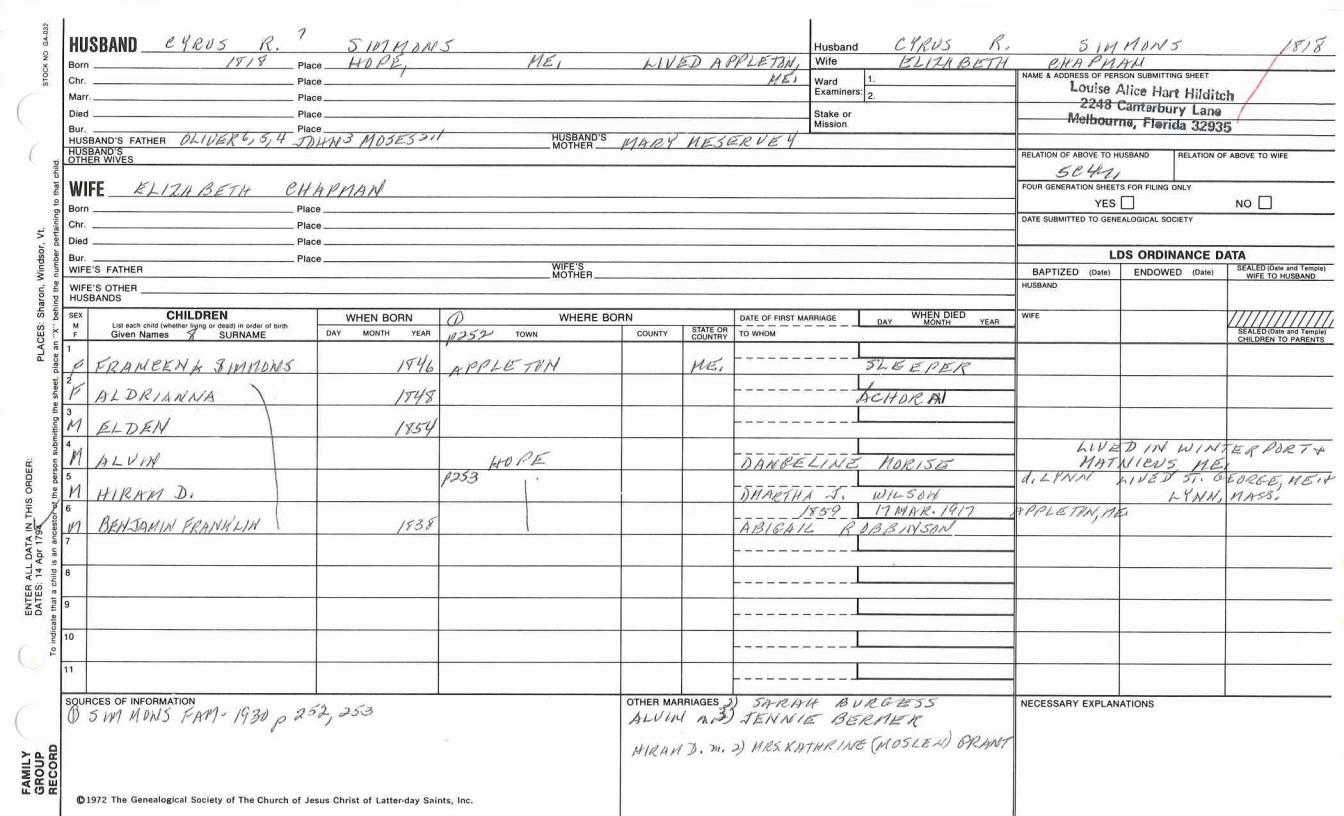 STOCK NO GA-032
HUSBAND CYRUS R. ? SIMMONS
Born 1818 Place HOPE, ME, LIVED APPLETON,
ME,
Chr. Place
Marr. Place
Died Place
Bur. Place
HUSBAND'S FATHER OLIVER 6, 5, 4 JOHN 3 MOSES 2, 1 HUSBAND'S MOTHER MARY MESERVEY
HUSBAND'S OTHER WIVES
WIFE ELIZABETH CHAPMAN
Born Place
Chr. Place
Died Place
Bur. Place
WIFE'S FATHER WIFE'S MOTHER
WIFE'S OTHER HUSBANDS
Husband CYRUS R. SIMMONS 1818
Wife ELIZABETH CHAPMAN
Ward Examiners: 1.
2.
Stake or Mission
NAME & ADDRESS OF PERSON SUBMITTING SHEET
Louise Alice Hart Hilditch
2248 Canterbury Lane
Melbourne, Florida 32935
RELATION OF ABOVE TO HUSBAND RELATION OF ABOVE TO WIFE
FOUR GENERATION SHEETS FOR FILING ONLY
YES NO
DATE SUBMITTED TO GENEALOGICAL SOCIETY
LDS ORDINANCE DATA
BAPTIZED (Date) ENDOWED (Date) SEALED (Date and Temple) WIFE TO HUSBAND
HUSBAND
WIFE
SEALED (Date and Temple) CHILDREN TO PARENTS
SEX M F
CHILDREN
List each child (whether living or dead) in order of birth
Given Names SURNAME
WHEN BORN
DAY MONTH YEAR
① WHERE BORN
p252 TOWN COUNTY STATE OR COUNTRY
DATE OF FIRST MARRIAGE
TO WHOM
WHEN DIED
DAY MONTH YEAR
1 F FRANCENA SIMMONS 1846 APPLETON ME, SLEEPER
2 F ALDRIANNA 1848 ACHORN
3 M ELDEN 1854
4 M ALVIN HOPE ANGELINE MORISE LIVED IN WINTERPORT +
MATNICUS, ME.
5 M HIRAM D. p253 MARTHA J. WILSON d. LYNN LIVED ST. GEORGE, ME +
LYNN, MASS.
6 M BENJAMIN FRANKLIN 1838 1859 17 MAR. 1917 APPLETON, ME.
ABIGAIL ROBBINSON
7
8
9
10
11
SOURCES OF INFORMATION
① SIMMONS FAM- 1930 p 252, 253
OTHER MARRIAGES 2) SARAH BURGESS
ALVIN m. 3) JENNIE BERMER
HIRAM D. m. 2) MRS. KATHRINE (MOSLEN) GRANT
NECESSARY EXPLANATIONS
©1972 The Genealogical Society of The Church of Jesus Christ of Latter-day Saints, Inc.
FAMILY
GROUP
RECORD
ENTER ALL DATA IN THIS ORDER:
DATES: 14 Apr 1794
PLACES: Sharon, Windsor, Vt.
To indicate that a child is an ancestor of the person submitting the sheet, place an "X" behind the number pertaining to that child.